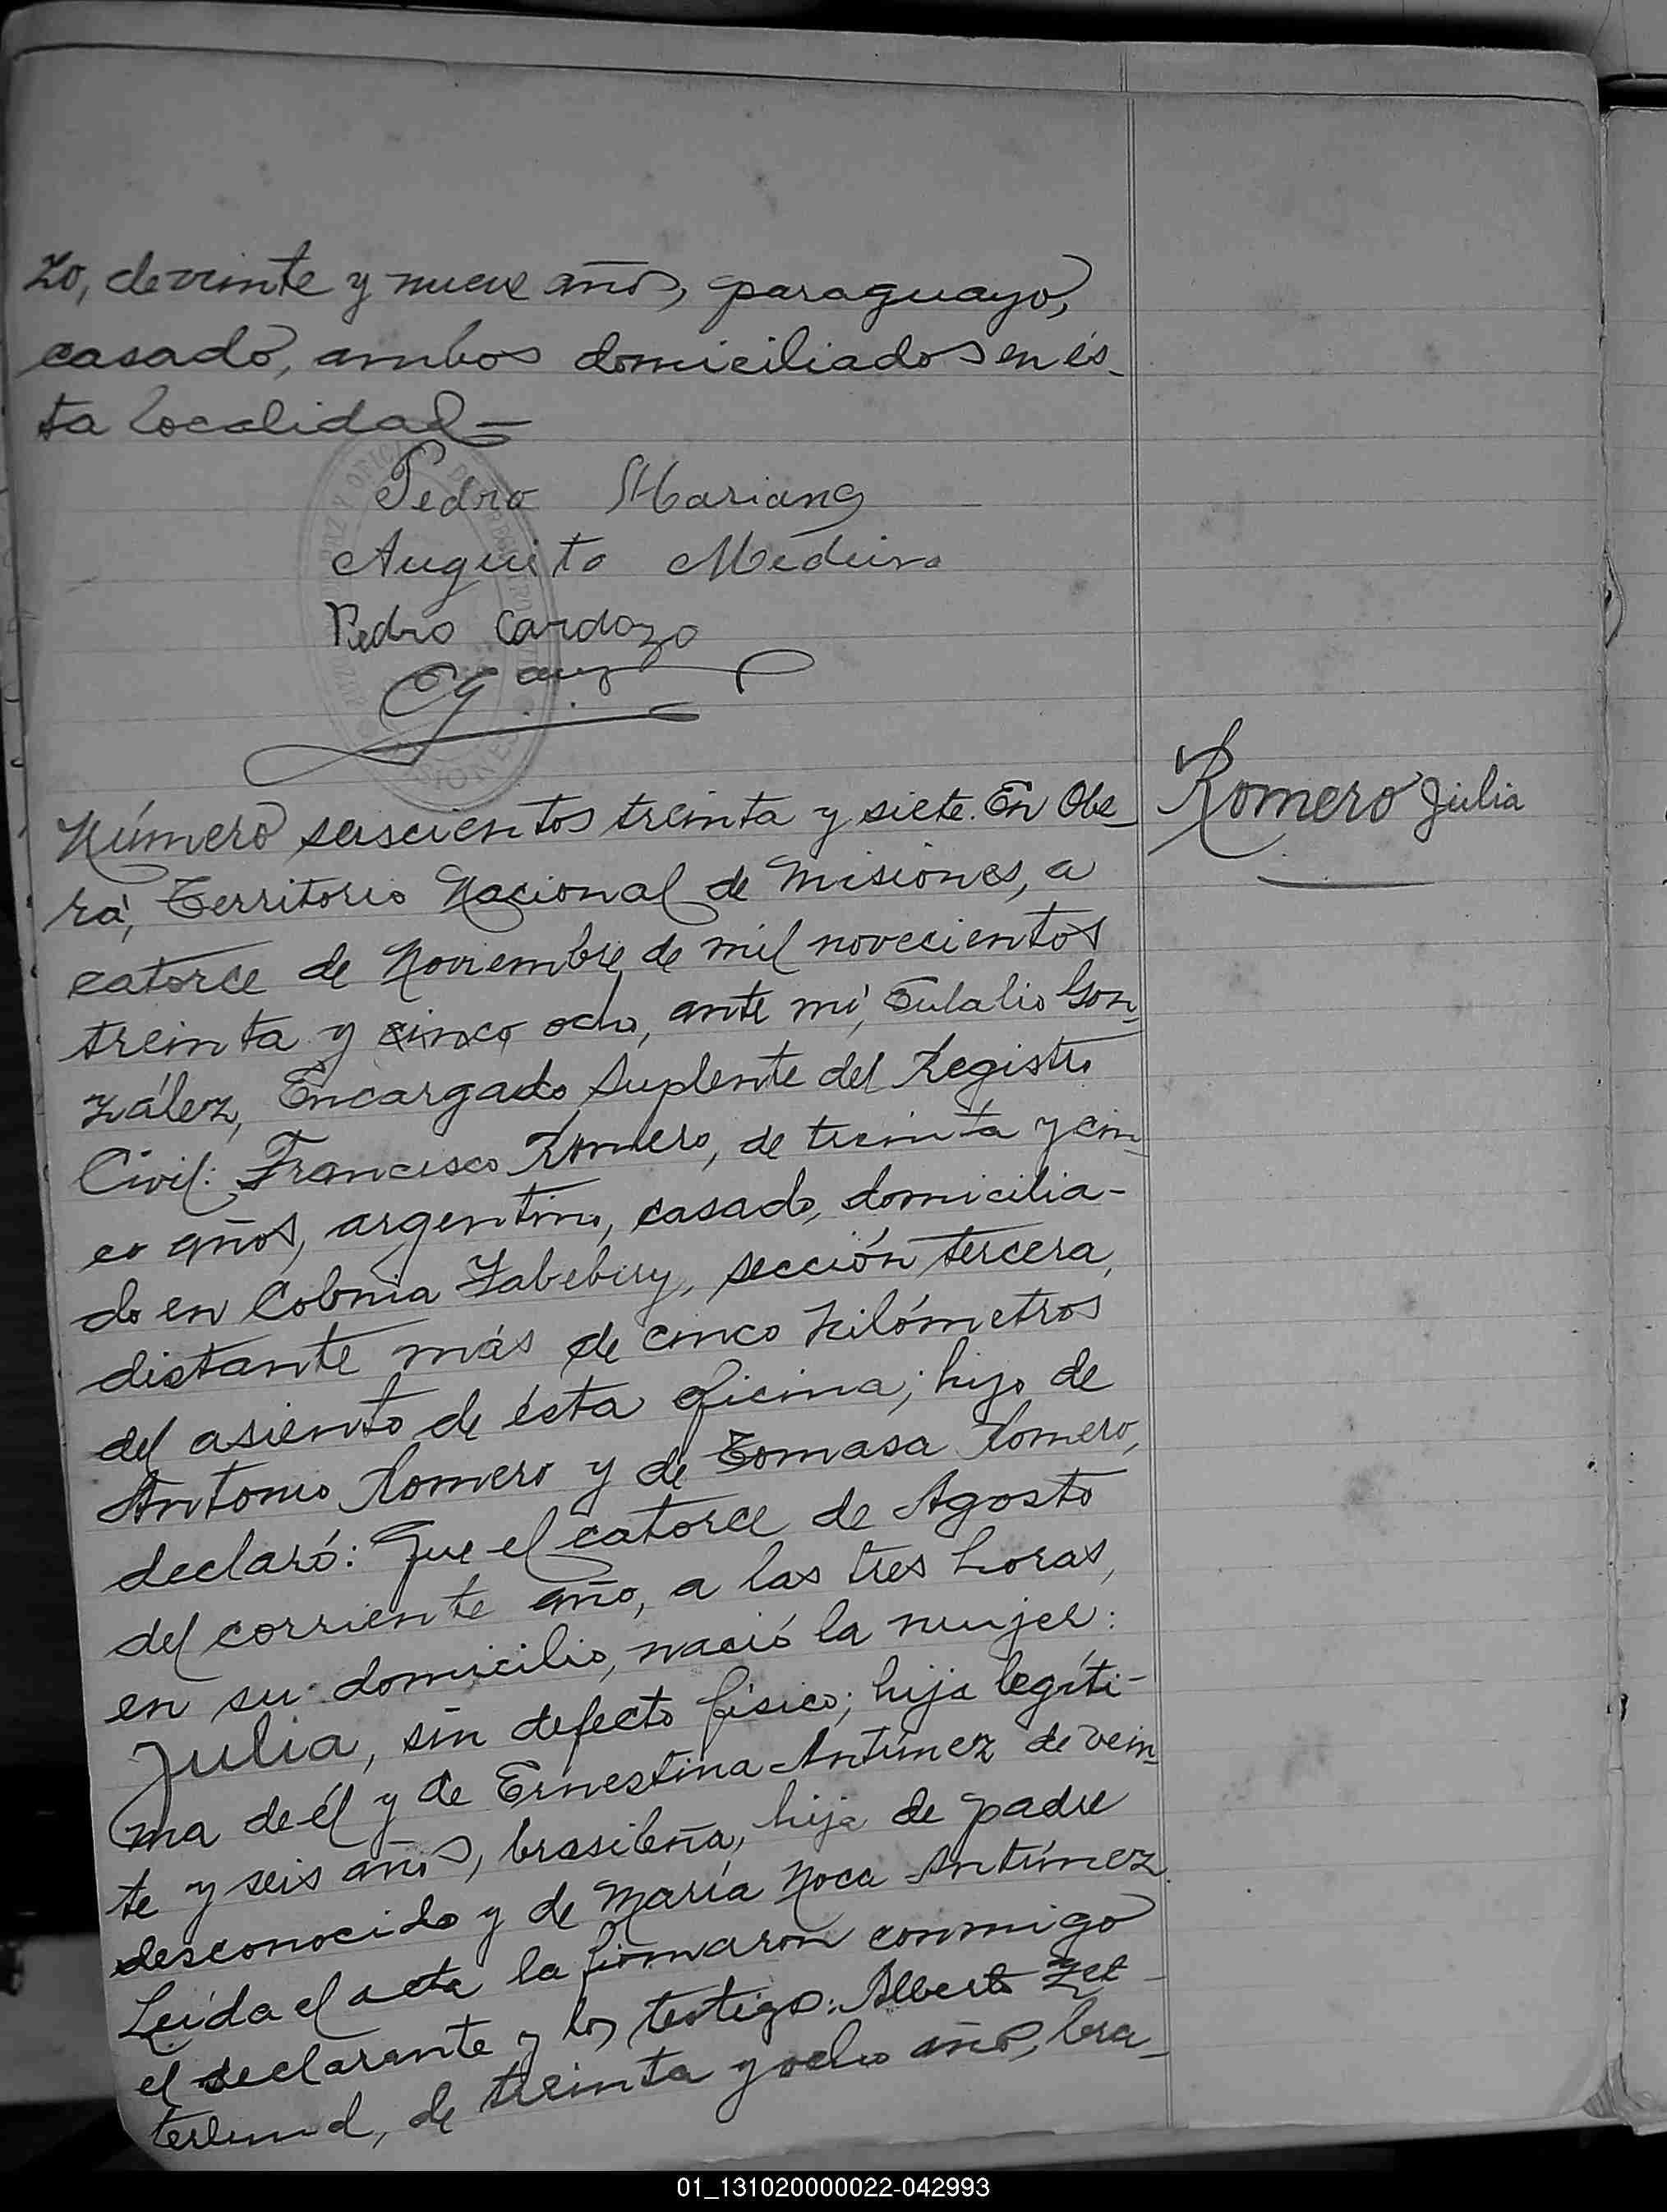 zo, de veinte y nueve años, paraguayo,
casado, ambos domiciliados en és-
ta localidad-
Pedro Mariano
Augusto Medeiro
Pedro Cardozo
Número seiscientos treinta y siete. En Obe-
rá, Territorio Nacional de Misiones, a
catorce de Noviembre de mil novecientos
treinta y cinco ocho, ante mí, Eulalio Gon-
zález, Encargado Suplente del Registro
Civil: Francisco Romero, de treinta y cin-
co años, argentino, casado, domicilia-
do en Colonia Yabebiry, sección tercera,
distante más de cinco kilómetros
del asiento de ésta oficina; hijo de
Antonio Romero y de Tomasa Romero,
declaró: Que el catorce de Agosto
del corriente año, a las tres horas,
en su domicilio, nació la mujer:
Julia, sin defecto físico; hija legíti-
ma de él y de Ernestina Antúnez de vein-
te y seis años, brasileña, hija de padre
desconocido y de María Roca Antúnez.
Leída el acta la firmaron conmigo
el declarante y los testigos: Alberto Zet-
terlund, de treinta y ocho años, bra-
Romero Julia
01_131020000022-042993